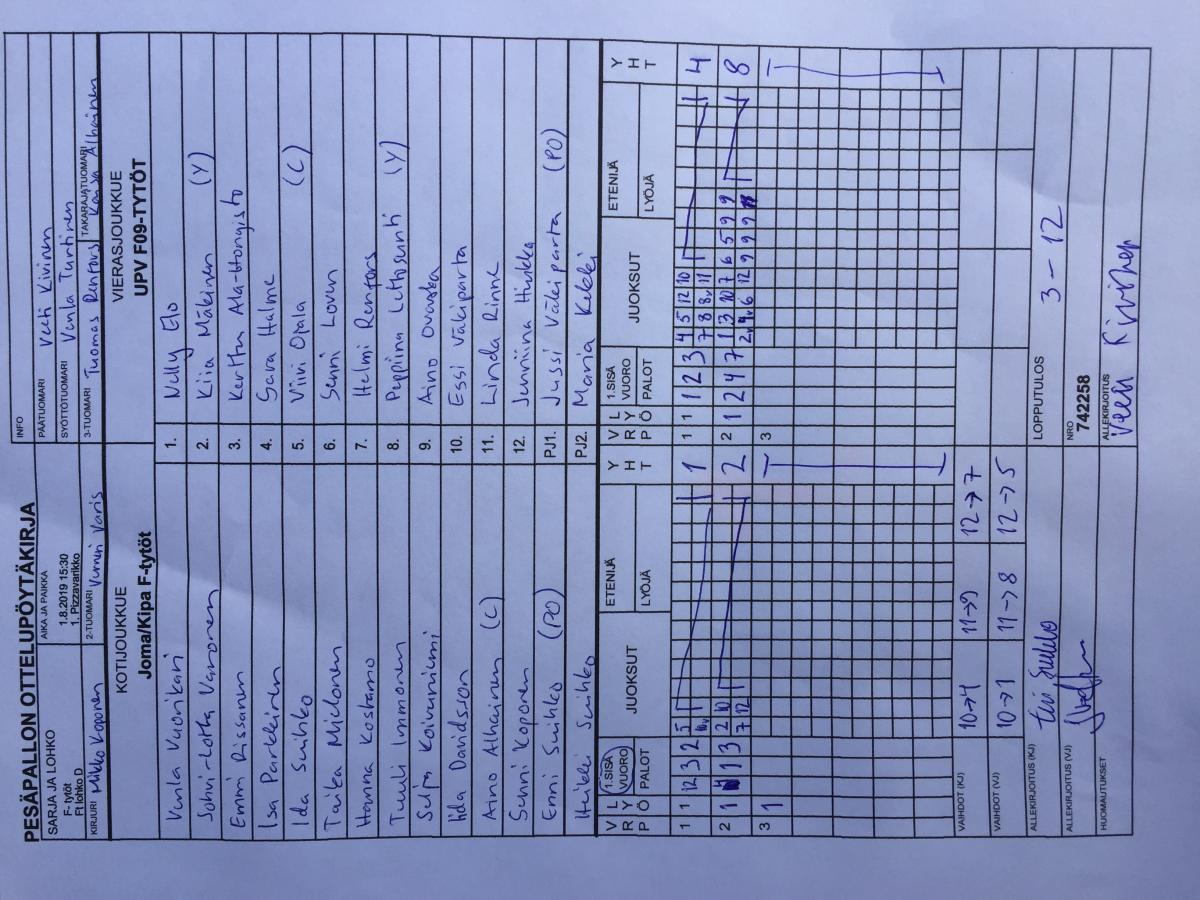 PESÄPALLON OTTELUPÖYTÄKIRJA
SARJA JA LOHKO
F- tytöt
Ft lohko D
AIKA JA PAIKKA
1.8.2019 15:30
1. Pizzavarikko
INFO
PÄÄTUOMARI Veeti Kivinen
SYÖTTÖTUOMARI Venla Turtinen
KIRJURI Mikko Koponen
2-TUOMARI Vumeri Varis
3-TUOMARI Tuomas Rentors
TAKARAJATUOMARI Kaisa Alhainen
KOTIJOUKKUE
Joma/Kipa F-tytöt
VIERASJOUKKUE
UPV F09-TYTÖT
Venla Vuorikari 1. Nelly Elo
Sohvi-Lotta Varonen 2. Kiia Mäkinen (Y)
Emmi Rissanen 3. Kerttu Ala-Hongisto
Isa Parkkinen 4. Sara Halme
Ida Suihko 5. Viivi Opala (C)
Taika Miclonen 6. Senni Loven
Hanna Kostamo 7. Helmi Rentors
Tuuli Immonen 8. Peppiina Lettosunti (Y)
Seija Koivuniemi 9. Aino Ovaska
Iida Davidsson 10. Essi Väkiparta
Aino Alhainen (C) 11. Linda Rinne
Senni Koponen 12. Junniina Hirkka
Enni Suihko (PO) PJ1. Jussi Väkiparta (PO)
Heikki Suihko PJ2. Maria Kekki
V L
R Y
P Ö
1.SISÄ
VUORO
PALOT
JUOKSUT
ETENIJÄ
LYÖJÄ
Y
H
T
V L
R Y
P Ö
1.SISÄ
VUORO
PALOT
JUOKSUT
ETENIJÄ
LYÖJÄ
Y
H
T
1 1 12 3 2 5 1 1 1 1 2 3 4 5 12 10 4
10v 7 8 8v 11
2 1 1 3 2 10 2 2 1 2 4 7 1 3 10 7 6 5 9 9 8
7 12 2v 4v 6 12 9 9 9
3 1 3
VAIHDOT (KJ) 10→4 11→9 12→7
VAIHDOT (VJ) 10→1 11→8 12→5
ALLEKIRJOITUS (KJ)
LOPPUTULOS 3 - 12
ALLEKIRJOITUS (VJ)
NRO
742258
HUOMAUTUKSET
ALLEKIRJOITUS Veeti Kivinen